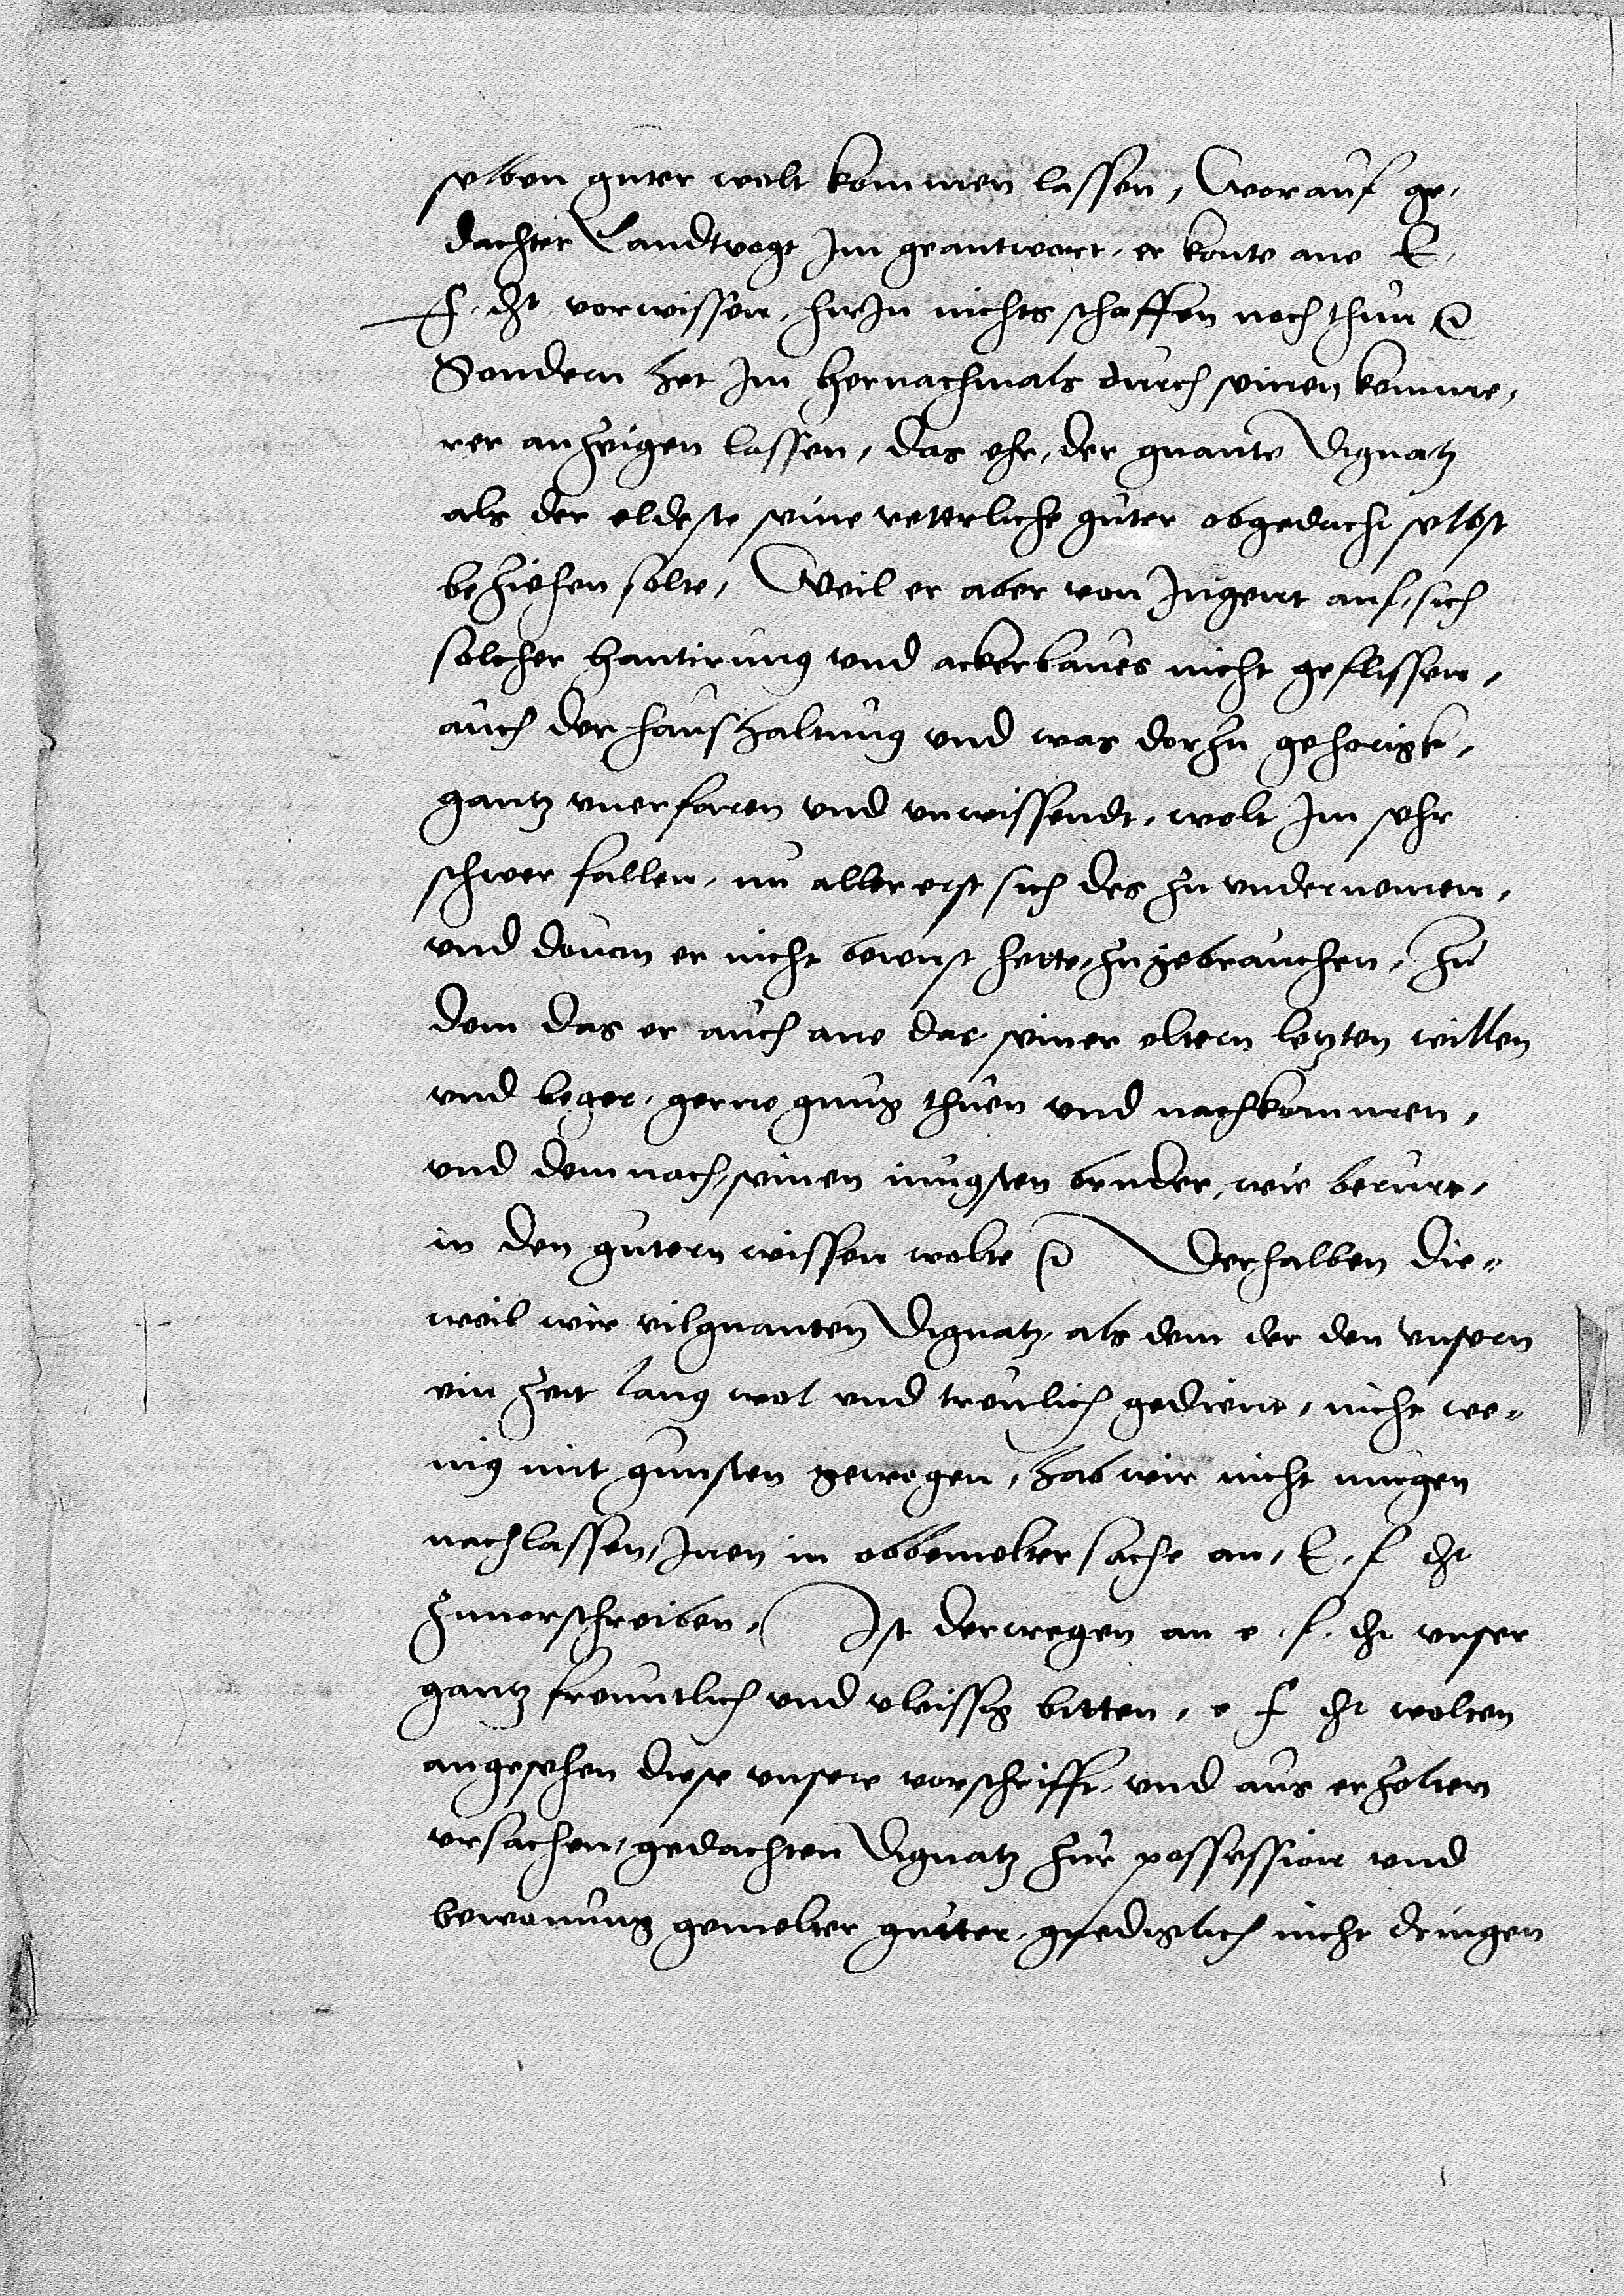 selben guter wolt kommen lassen, Worauf ge,
dachter Landtvogt Jm geantwort, er konte ane E,
f. dht vorwissen, hirJn nichts schaffen noch thun
Sondern het Jm hernachmals durch seinen komme,
rer anzeigen lassen, das ehr, der gnante Dignatz
als der eldeste seine veterliche guter obgedacht selbst
beziehen solte, Weil er aber von Jugent auf, sich
solcher hantirung vnd ackerbaues nicht geflissen,
auch der haushaltung vnd was dorzu gehorigk,
gantz vnerfaren vnd vnwissendt, wolt Jm sehr
schwer fallen, nu aller erst sich des zu vndernemen,
vnd douan er nicht bewust hette, zugebrauchen, Zu
dem das er auch ane das seiner eltern letzten willen
vnd beger, gerne gnug thuen vnd nachkommen,
vnd demnach, seinen iungsten bruder, wie berurt,
in den gutern wissen wolte Derhalben die-
weil wir vilgnanten Dignatz, als dem der den vnsern
ein Zeit lang wol vnd treulich gedient, nicht we-
nig mit gunsten gewogen, hab wir nicht mugen
nachlassen, Jnen in obbemelter sache an, E, f dht
zuuorschreiben, Ist derwegen an e. f. dht vnser
gantz freuntlich vnd vleissig bitten, e f dht wolten
angesehen diese vnsere vorschrifft, vnd aus erzelten
vrsachen, gedachten Dignatz zur possession vnd
bewonung gemelter gutter, gnediglich nicht dringen